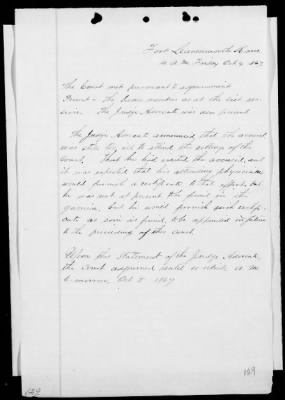 Fort Leavenworth Kans
10 A.M. Friday Oct 4 1867
The Court met pursuant to adjournment
Present – the same members as at the last ses-
sion. The Judge Advocate was also present
The Judge Advocate announced that the accused
was still too ill to attend the sittings of the
Court. That he had visited the accused, and
it was expected that his attending physician
would furnish a certificate to that effect, but
he was not at present to be found in the
garrison, but he would furnish such certifi-
cate as soon as found, to be appended
to the proceedings of this court.
Upon this statement of the Judge Advocate,
the Court adjourned until 10 o'clock A.M.
to-morrow, Oct 5 1867
129
129